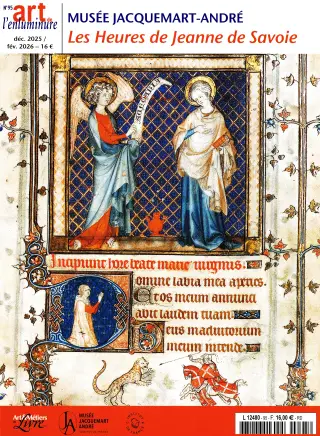 N°95
art de
l'enluminure
déc. 2025 /
fév. 2026 – 16 €
MUSÉE JACQUEMART-ANDRÉ
Les Heures de Jeanne de Savoie
Incipiunt hore beate marie virginis.
Domine labia mea aperies.
Et os meum annunt
abit laudem tuam.
Deus in adiutorium
meum intende.
Art & Métiers
du Livre
JA
MUSÉE
JACQUEMART
ANDRÉ
L 12400 - 95 - F: 16,00 € - RD